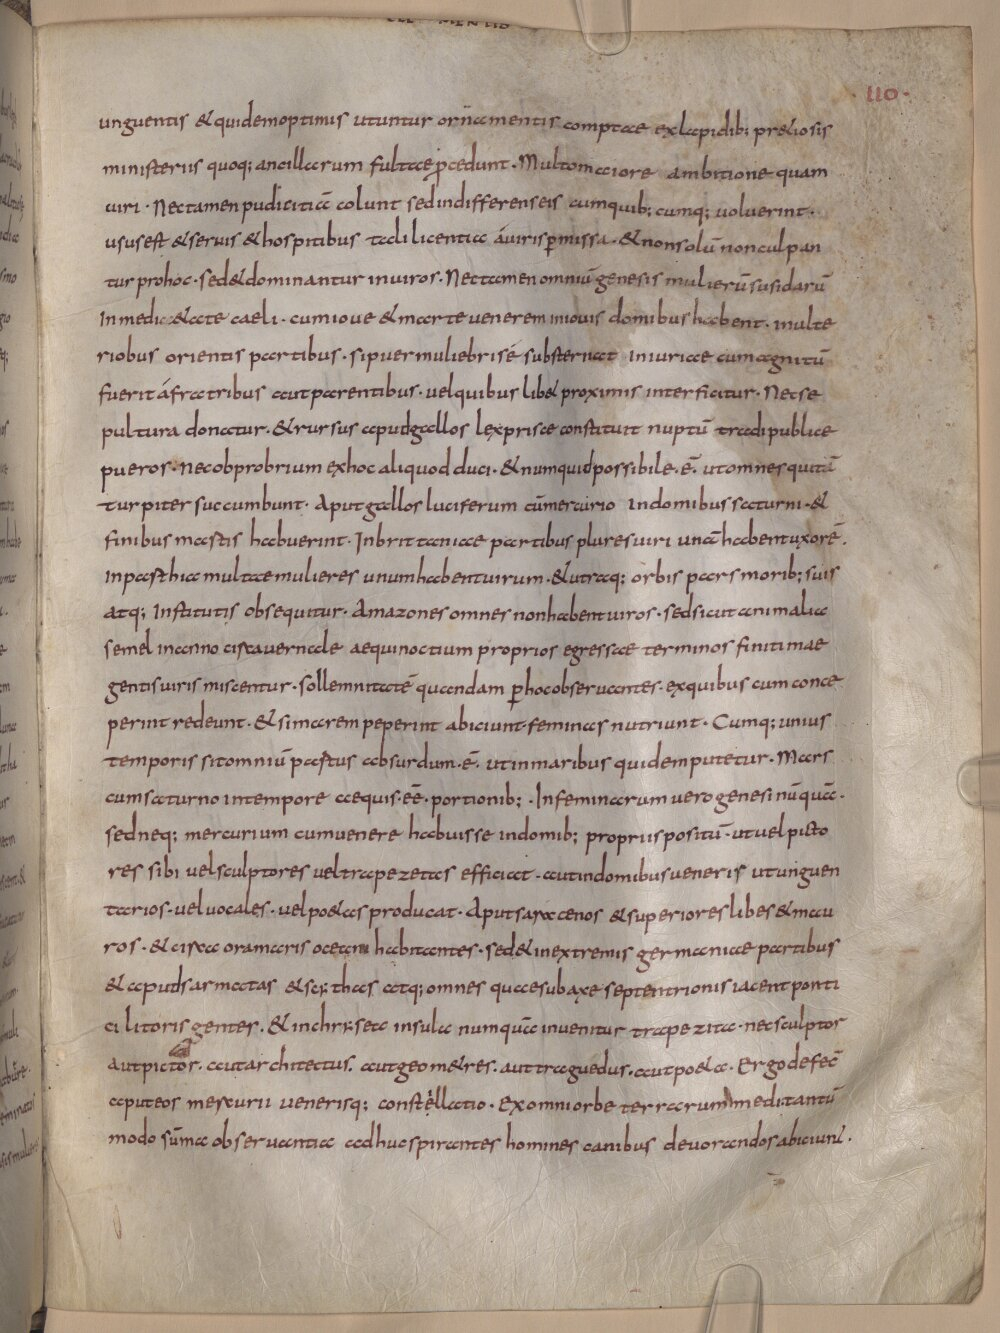 110
unguentis & quidem optimis utuntur ornamentis comptae ex lapidib; pretiosis
ministeriis quoq; ancillarum fultae pcedunt. Multo maiore ambitione quam
uiri. Nec tamen pudicitiā colunt sed indifferenseis cumquib; cumq; uoluerint.
usus est & seruis & hospitibus tali licentia á uiris pmissa. & non solū non culpan
tur pro hoc. sed & dominantur in uiros. Nec tamen omniū genesis mulierū susidarū
In medio & ate caeli. cum ioue & marte uenerem in iouis domibus habent. In ulte
rioribus orientis partibus. si puer muliebris é substernat in iuriae cum agnitū
fuerit á fratribus aut parentibus. uel quibuslib& proximis interficitur. Nec se
pultura donatur. & rursus aput gallos lex prisca constituit nuptū tradi publice
pueros. nec obprobrium ex hoc aliquod duci. & numquid possibile .ē. ut omnes qui tā
turpiter succumbunt. Aput gallos luciferum cū mercurio In domibus saturni. &
finibus mastis habuerint. In brittaniae partibus plures uiri unā habent uxorē.
In pasthia multae mulieres unum habent uirum. & utraq; orbis pars morib; suis
atq; Institutis obsequitur. Amazones omnes non habent uiros. sed sicut animalia
semel in anno cisca uernale aequinoctium proprios egressae terminos finitimae
gentis uiris miscentur. sollemnitatē quandam p hoc obseruantes. ex quibus cum conce
perint redeunt. & si marem peperint abiciunt. feminas nutriunt. Cumq; unius
temporis sit omniū pastus absurdum .ē. ut in maribus quidem putetur. Mars
cum saturno in tempore aequis .éē. portionib; . In feminarum uero genesi nūquā.
sed neq; mercurium cum uenere habuisse in domib; propriis positū. ut uel picto
res sibi uel sculptores uel trapezetas efficiat. aut in domibus ueneris ut unguen
tarios. uel uocales. uel po&as producat. Aput sarxcenos & superiores libes & mau
ros. & cisca ora maris oceani habitantes. sed & in extremis germaniae partibus
& aput sarmatas & scythas atq; omnes quae sub axe septentrionis iacent ponti
ci litoris gentes. & in chrysea insula numquā inuenitur trapezita. nec sculptor
aut pictor. aut architectus. aut geom&res. aut traguedus. aut po&a. Ergo defec̄
aput eos mescurii uenerisq; constellatio. Ex omni orbe terrarum medi. tantū
modo sūma obseruantia adhuc spirantes homines canibus deuorandos abiciunt.